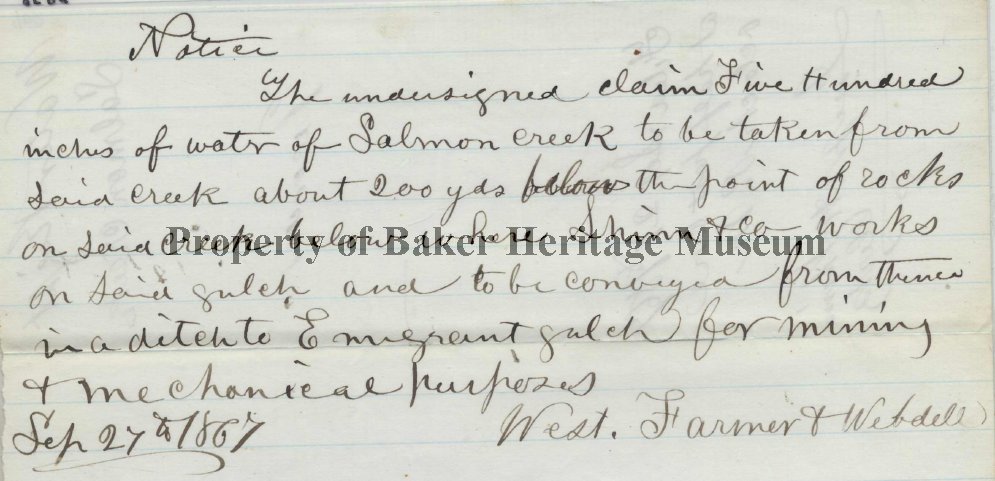 Notice
The undersigned claim Five Hundred
inches of water of Salmon creek to be taken from
said creek about 200 yds the point of rocks
on said creek below where & co works
Property of Baker Heritage Museum
on said gulch and to be conveyed from thence
in a ditch to Emigrant gulch for mining
& mechanical purposes
Sep 27th 1867
West. Farmer & Webdell